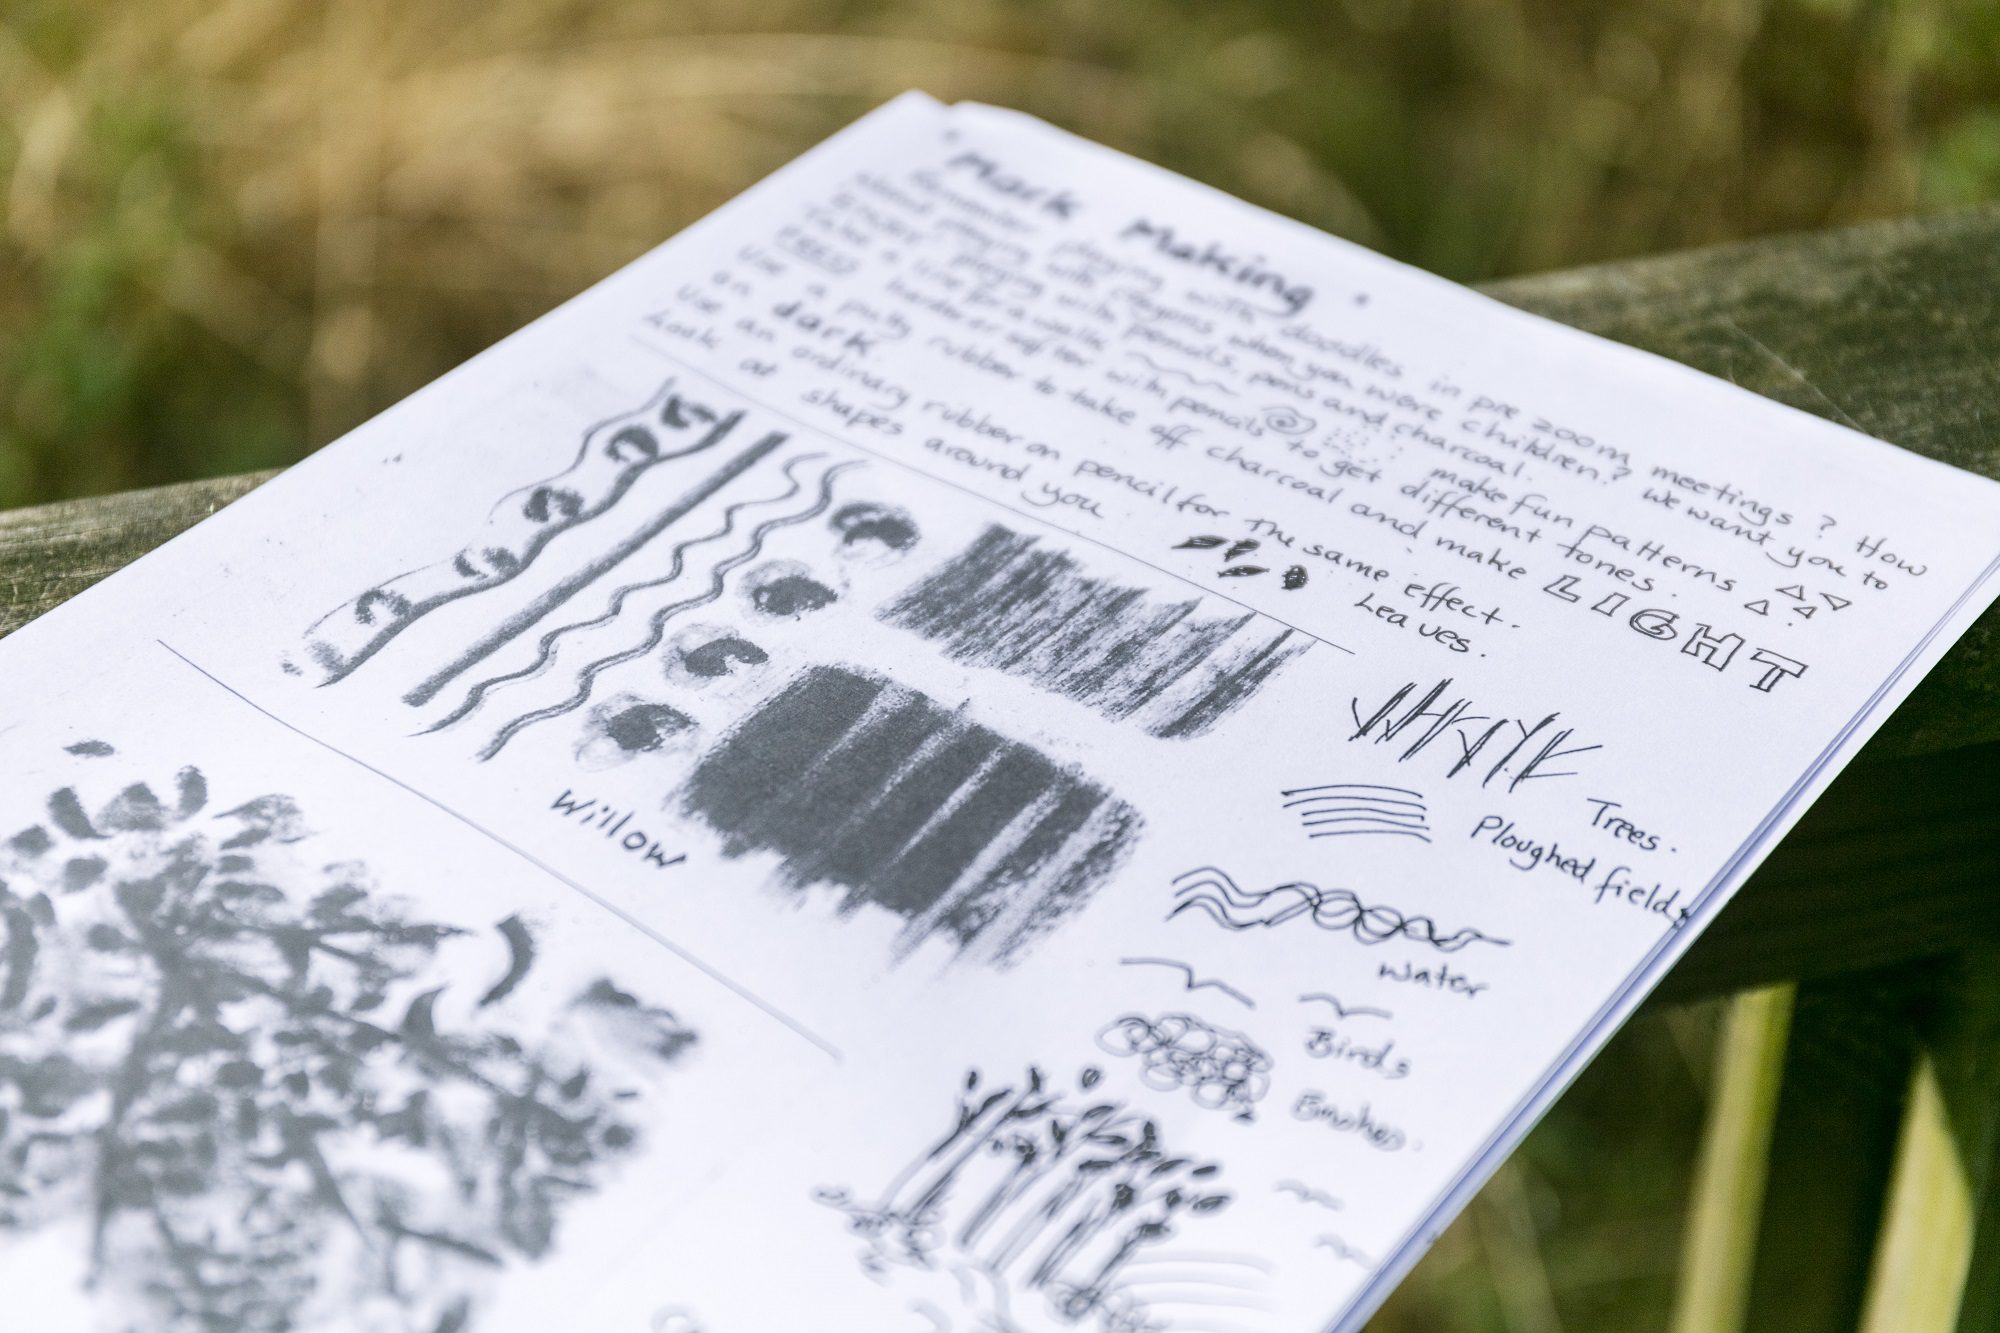 Mark Making.
Remember playing with doodles in pre zoom meetings ? How
about playing with crayons when you were children? We want you to
playing with pencils, pens and charcoal.
Take a line for a walk make fun patterns
PRESS harder or softer with pencils to get different tones.
Use a putty rubber to take off charcoal and make LIGHT
on dark.
Use an ordinary rubber on pencil for the same effect.
Look at shapes around you
Leaves.
Trees.
Ploughed fields
Willow
Water
Birds
Bushes.